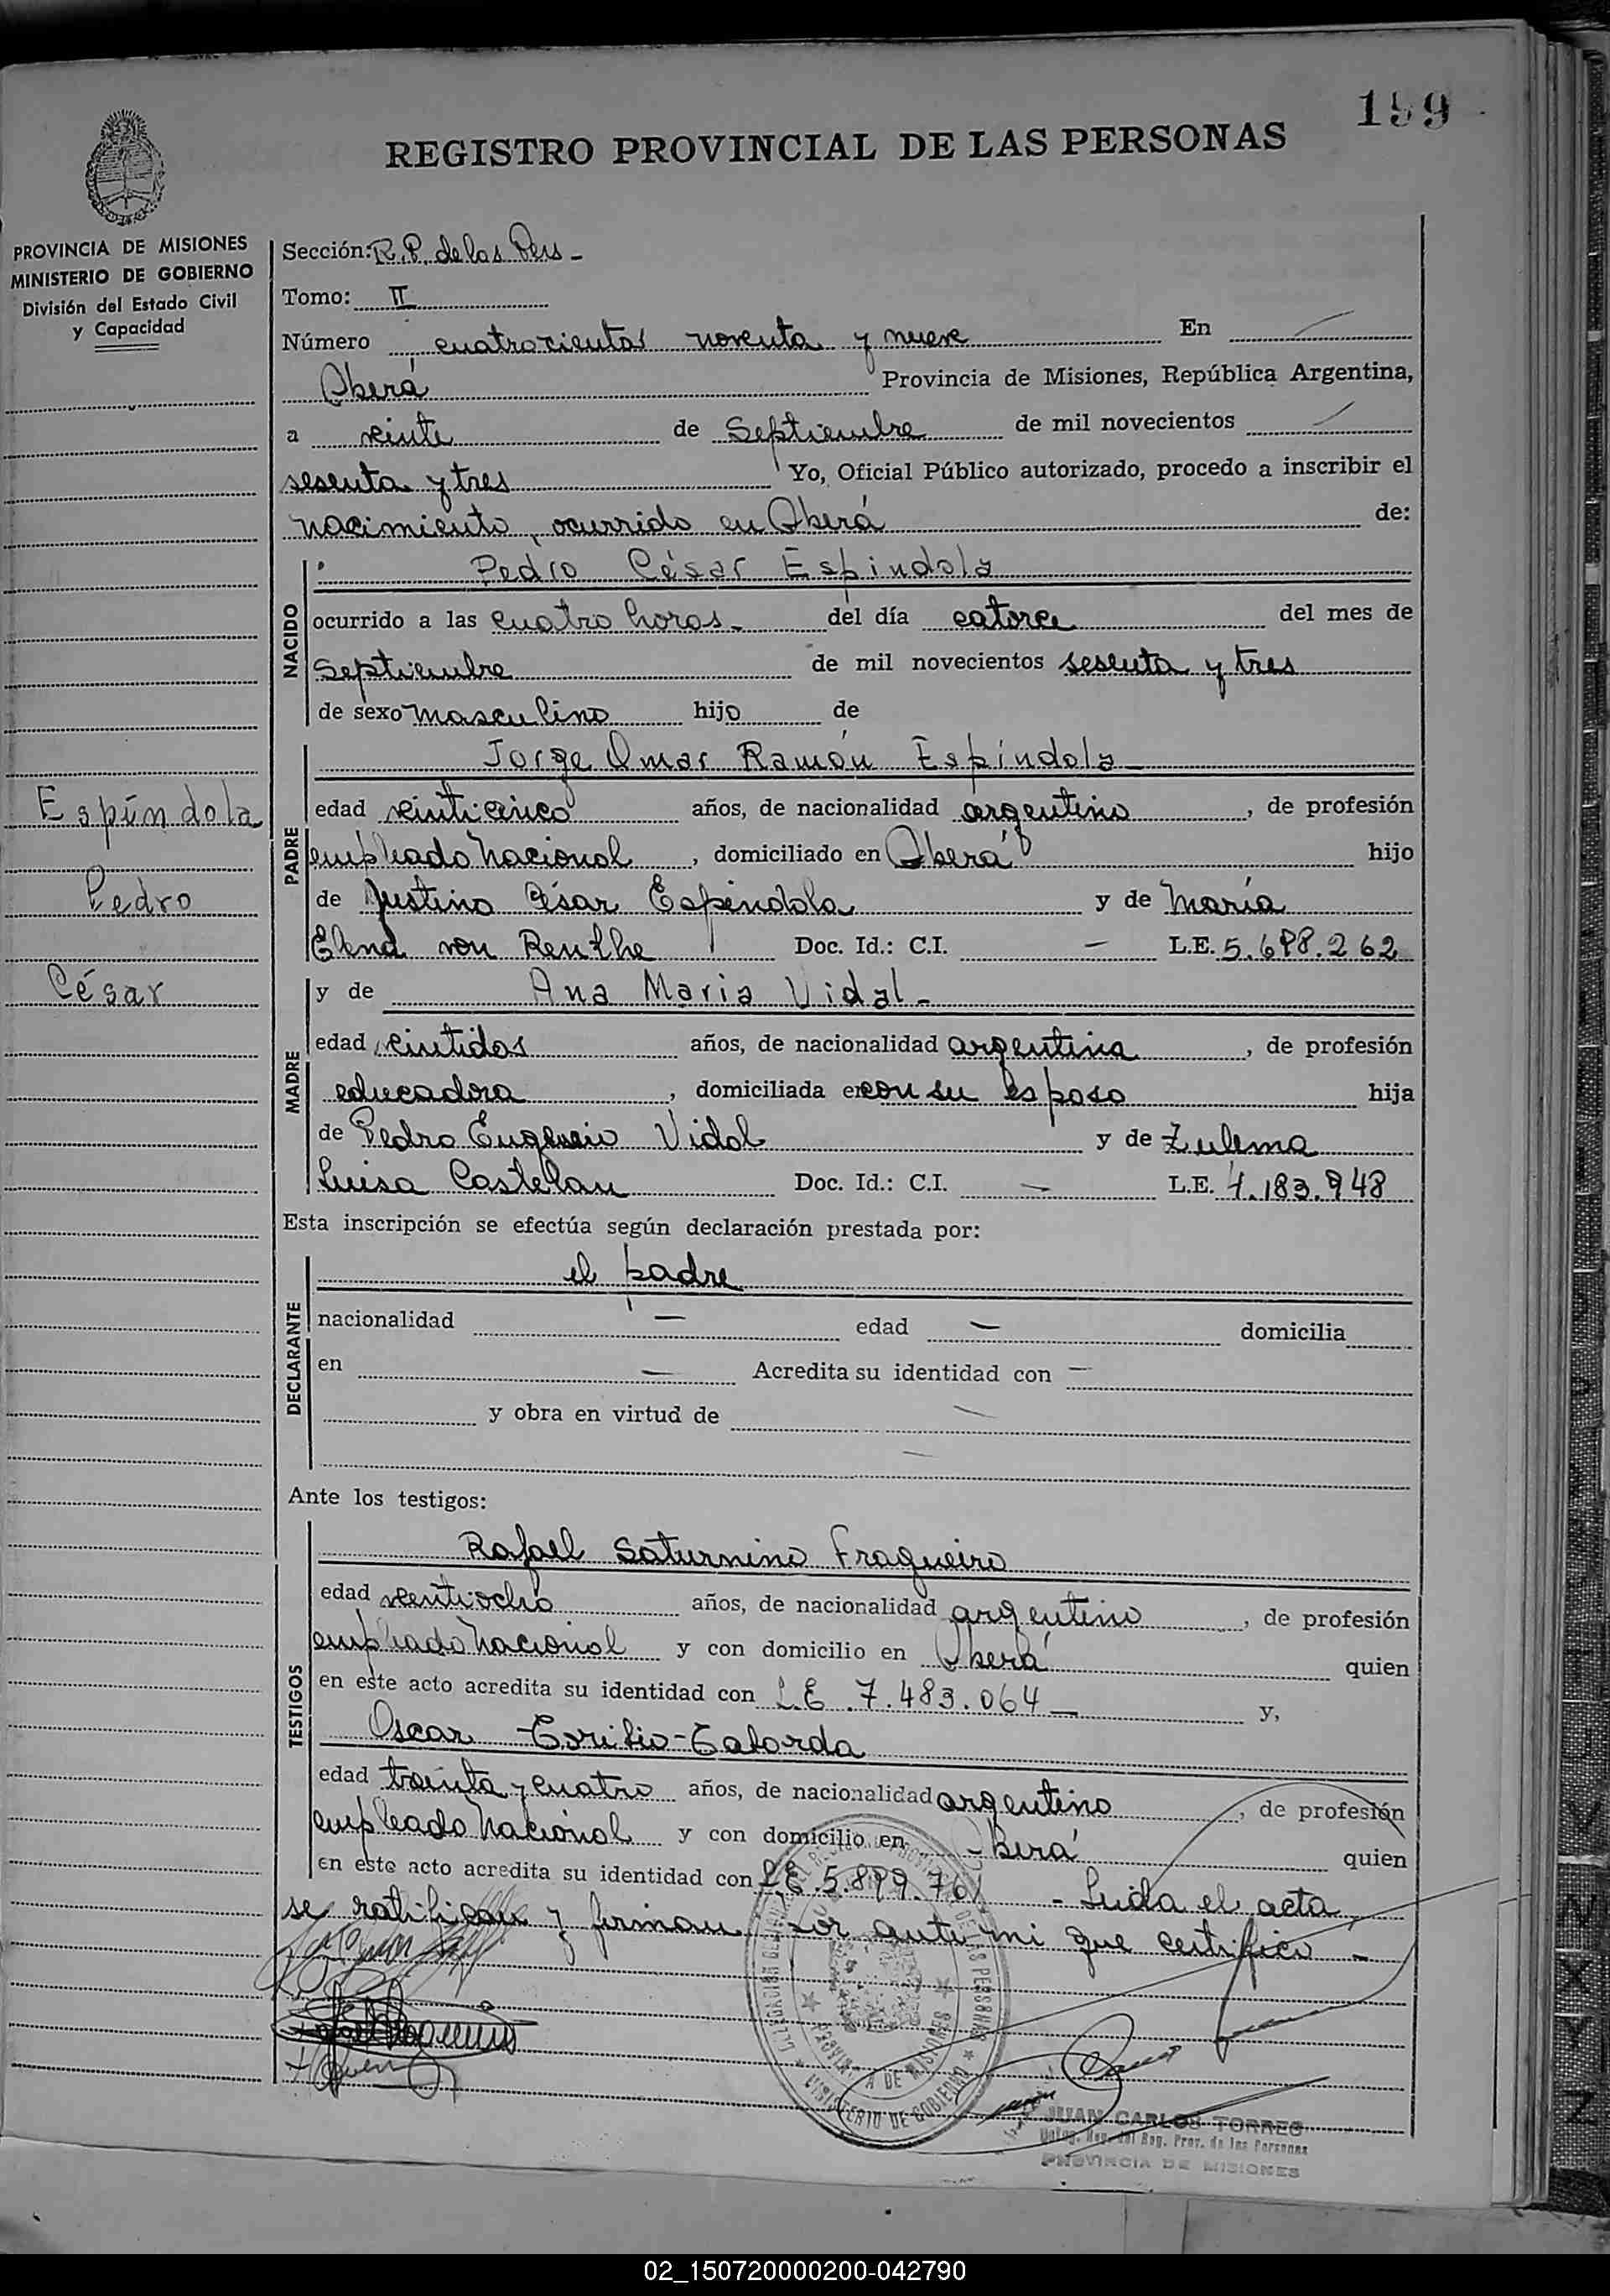 199
REGISTRO PROVINCIAL DE LAS PERSONAS
PROVINCIA DE MISIONES
MINISTERIO DE GOBIERNO
División del Estado Civil
y Capacidad
Sección: R.P. de las Pers -
Tomo: II
Número cuatrocientos noventa y nueve En
Oberá Provincia de Misiones, República Argentina,
a veinte de Septiembre de mil novecientos
sesenta y tres Yo, Oficial Público autorizado, procedo a inscribir el
nacimiento, ocurrido en Oberá de:
NACIDO
Pedro César Espindola
ocurrido a las cuatro horas - del día catorce del mes de
Septiembre de mil novecientos sesenta y tres
de sexo masculino hijo de
PADRE
Jorge Omar Ramón Espíndola
edad veinticinco años, de nacionalidad argentino, de profesión
empleado Nacional, domiciliado en Oberá hijo
de Justino César Espíndola y de María
Elena von Renthe Doc. Id.: C.I. — L.E. 5.698.262
Espíndola
Pedro
César
MADRE
y de Ana Maria Vidal -
edad veintidos años, de nacionalidad argentina, de profesión
educadora, domiciliada en con su esposo hija
de Pedro Eugenio Vidal y de Zulema
Luisa Castelan Doc. Id.: C.I. — L.E. 4.183.948
Esta inscripción se efectúa según declaración prestada por:
DECLARANTE
el padre
nacionalidad — edad — domicilia
en — Acredita su identidad con —
y obra en virtud de —
—
Ante los testigos:
TESTIGOS
Rafael Saturnino Fragueiro
edad veintiocho años, de nacionalidad argentino, de profesión
empleado Nacional y con domicilio en Oberá quien
en este acto acredita su identidad con L.E. 7.483.064 — y,
Oscar
edad treinta y cuatro años, de nacionalidad argentino, de profesión
empleado Nacional y con domicilio en Oberá quien
en este acto acredita su identidad con L.E. 5.899.761 - Leida el acta,
se ratifican y firman por ante mi que certifico -
PROVINCIA DE MISIONES
MINISTERIO DE GOBIERNO
JUAN CARLOS TORRES
Reg. Prov. de las Personas
PROVINCIA DE MISIONES
02_150720000200-042790